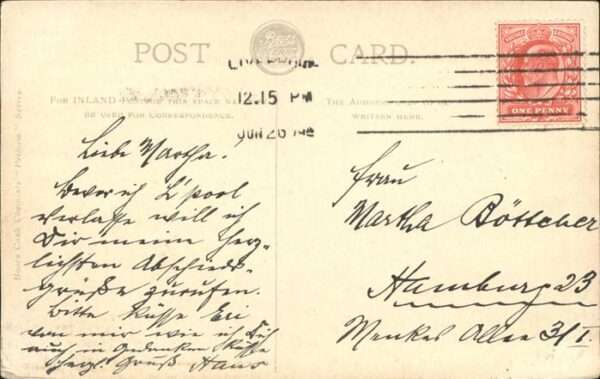 POST CARD.
LIVERPOOL
12.15 PM
JUN 26
ONE PENNY
FOR INLAND POSTAGE THIS SPACE MAY
BE USED FOR CORRESPONDENCE.
THE ADDRESS ONLY TO BE
WRITTEN HERE.
Liebe Martha!
Bevor ich L'pool
verlasse will ich
Dir meine herz-
lichsten Abschieds-
grüße zurufen.
Bitte küsse
von mir wie ich Dich
auch in Gedanken küsse
herzl. Gruß Hans
Frau
Martha Böttcher
Hamburg 23
Menkes Allee 3/I.